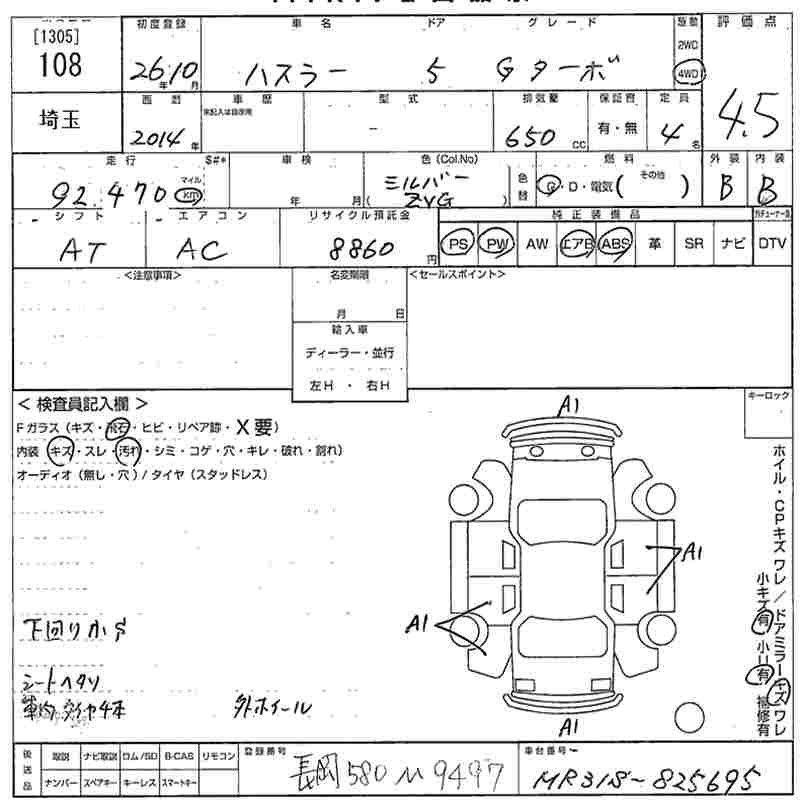 [1305]
108
初度登録 車名 ドア グレード 駆動 評価点
26年10月 ハスラー 5 Gターボ 2WD 4WD 4.5
埼玉
西暦 車歴 型式 排気量 保証書 定員
未記入は自家用
2014年 － 650cc 有・無 4名
走行 S#* 車検 色(Col.No) 燃料 外装 内装
92,470 マイル km 年 月 シルバー ZVG 色替 G・D・電気( その他 ) B B
シフト エアコン リサイクル預託金 純正装備品
AT AC 8860円 PS PW AW エアB ABS 革 SR ナビ DTV
<注意事項> 名変期限 <セールスポイント>
月 日
輸入車
ディーラー・並行
左H ・ 右H
キーロック
＜ 検査員記入欄 ＞
Fガラス (キズ・飛石・ヒビ・リペア跡・X要)
内装 (キズ・スレ・汚れ・シミ・コゲ・穴・キレ・破れ・割れ)
オーディオ (無し・穴) / タイヤ (スタッドレス)
A1
A1
A1
A1
ホイル・CPキズ ワレ / ドアミラーキズ ワレ
小キズ有 小U有 補修有
下回りカラ
シートヘタリ
車内タイヤ4本 外ホイール
後送品 取説 ナビ取説 ロム/SD B-CAS リモコン 登録番号 車台番号
ナンバー スペアキー キーレス スマートキー 長岡 580 ル 9497 MR31S-825695